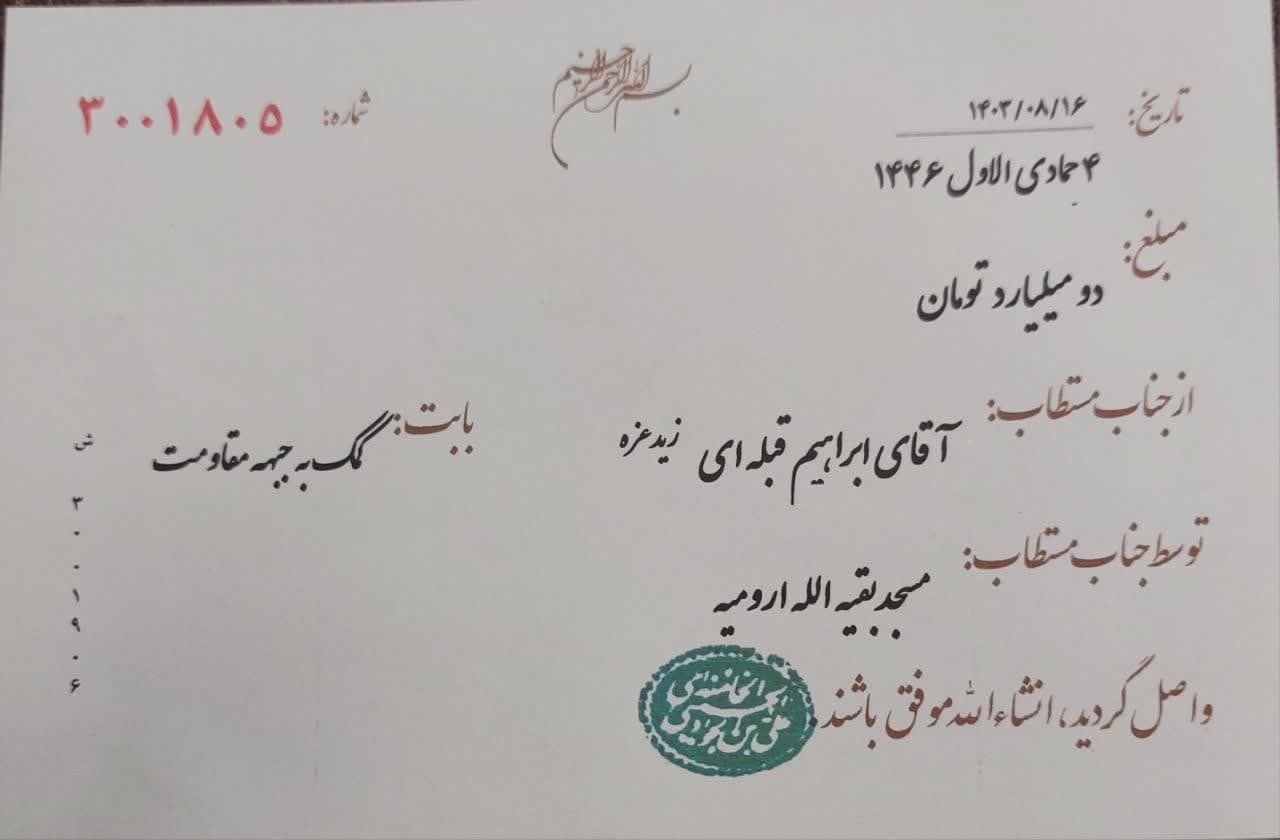 بسم الله الرحمن الرحیم
تاریخ: ۱۴۰۳/۰۸/۱۶
۴ جمادی الاول ۱۴۴۶
شماره: ۳۰۰۱۸۰۵
مبلغ:
دو میلیارد تومان
از جناب مستطاب:
آقای ابراهیم قبله ای زید عزه
بابت:
کمک به جبهه مقاومت
توسط جناب مستطاب:
مسجد بقیه الله ارومیه
واصل گردید، انشاءالله موفق باشند.
ش
۳
۰
۰
۱
۹
۰
۶